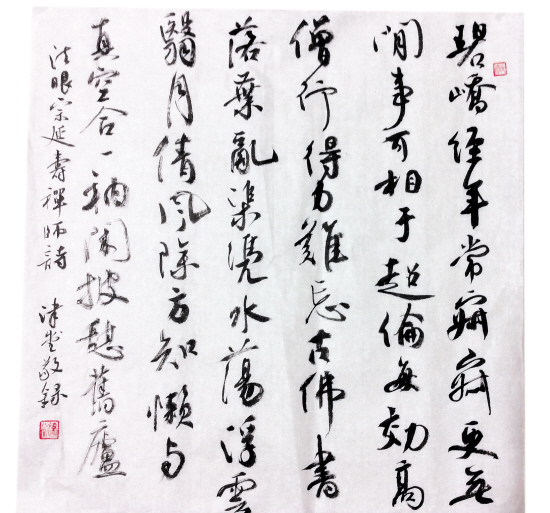 碧嶠經年常寂寂更無
閒事可相于超倫每效高
僧行得力難忘古佛書
落葉亂渠憑水蕩浮雲
翳月倩風除方知懶與
真空合一衲閑披憩舊廬
法眼宗延壽禪師詩 敬録